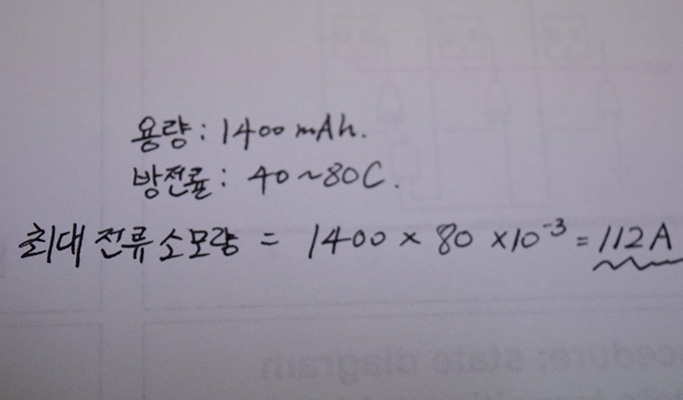 용량 : 1400 mAh.
방전률 : 40 ~ 80C.
최대 전류 소모량 = 1400 × 80 ×10⁻³ = 112A
ocedure: state diagram